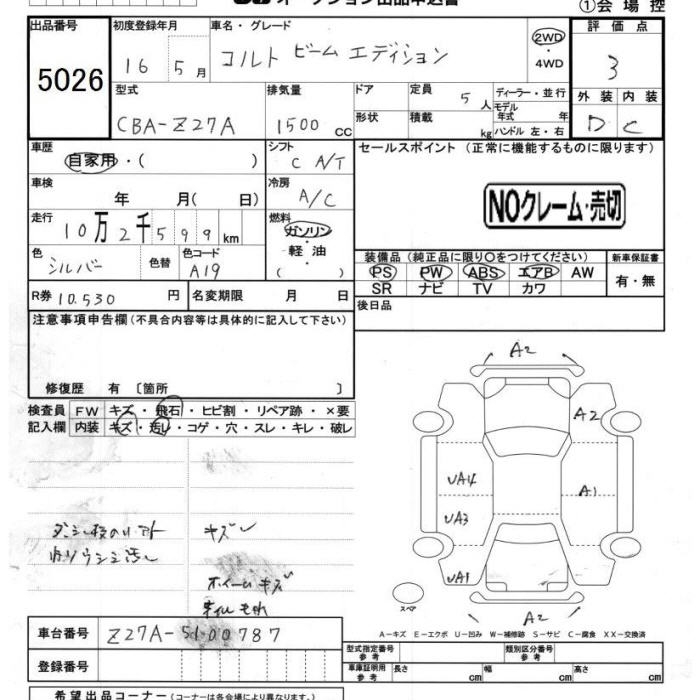 オークション出品申込書
①会場控
出品番号 初度登録年月 車名・グレード 2WD 評価点
5026 16 5月 コルト ビームエディション ・ 4WD 3
型式 排気量 ドア 定員 5人 ディーラー・並行 外装 内装
CBA-Z27A 1500 CC 形状 積載 kg モデル年式 年 D C
ハンドル 左・右
車歴 シフト セールスポイント (正常に機能するものに限ります)
自家用・( ) C A/T
車検 冷房
年 月( 日) A/C NOクレーム・売切
走行 燃料
10万2千599km ガソリン・軽油( )
色 色替 色コード
シルバー A19
装備品 (純正品に限り○をつけてください) 新車保証書
PS PW ABS エアB AW 有・無
SR ナビ TV カワ
R券 10.530 円 名変期限 月 日 後日品
注意事項申告欄 (不具合内容等は具体的に記入して下さい)
修復歴 有 〔箇所 〕
検査員 FW キズ・飛石・ヒビ割・リペア跡・×要
記入欄 内装 キズ・汚レ・コゲ・穴・スレ・キレ・破レ
A2
A2
UA4 A1
UA3
キズ
ホイールキズ
UA1
スペア
A2
A-キズ E-エクボ U-凹み W-補修跡 S-サビ C-腐食 XX-交換済
車台番号 Z27A-5100787
型式指定番号 参考 類別区分番号 参考
登録番号 車庫証明用 参考 長さ cm 幅 cm 高さ cm
希望出品コーナー (コーナーは各会場により異なります。)